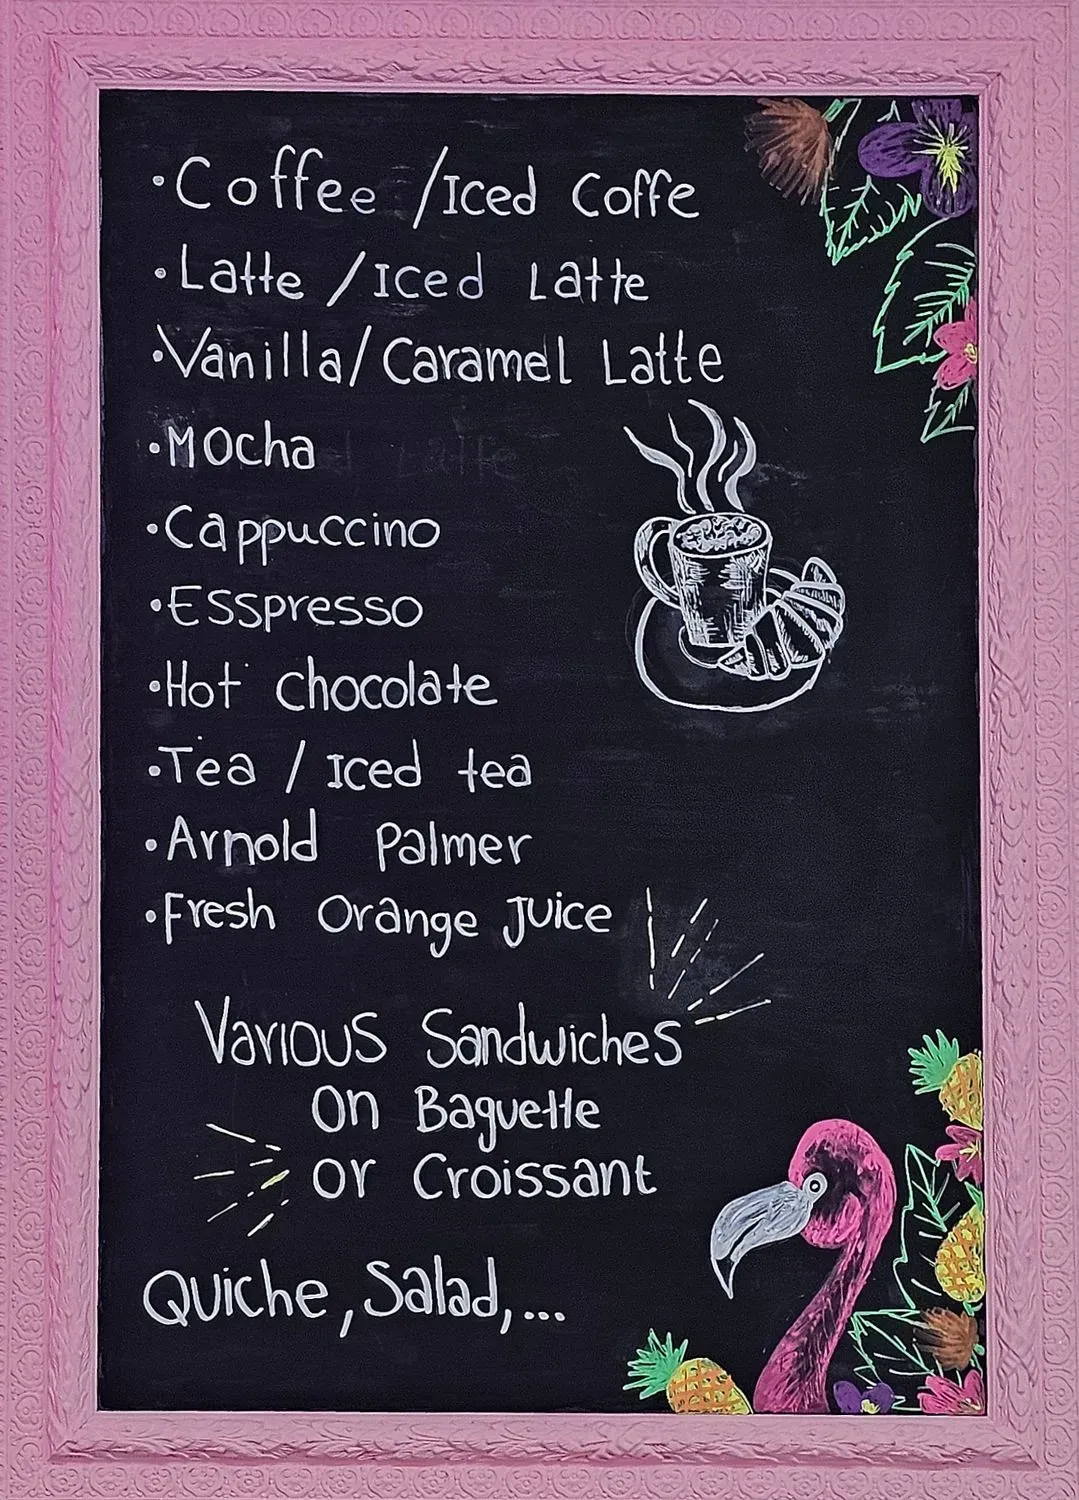 ·Coffee /Iced Coffe
·Latte /Iced Latte
·Vanilla/Caramel Latte
·Mocha
·Cappuccino
·Esspresso
·Hot chocolate
·Tea / Iced tea
·Arnold Palmer
·Fresh Orange Juice
Various Sandwiches
On Baguette
or Croissant
Quiche, Salad,...